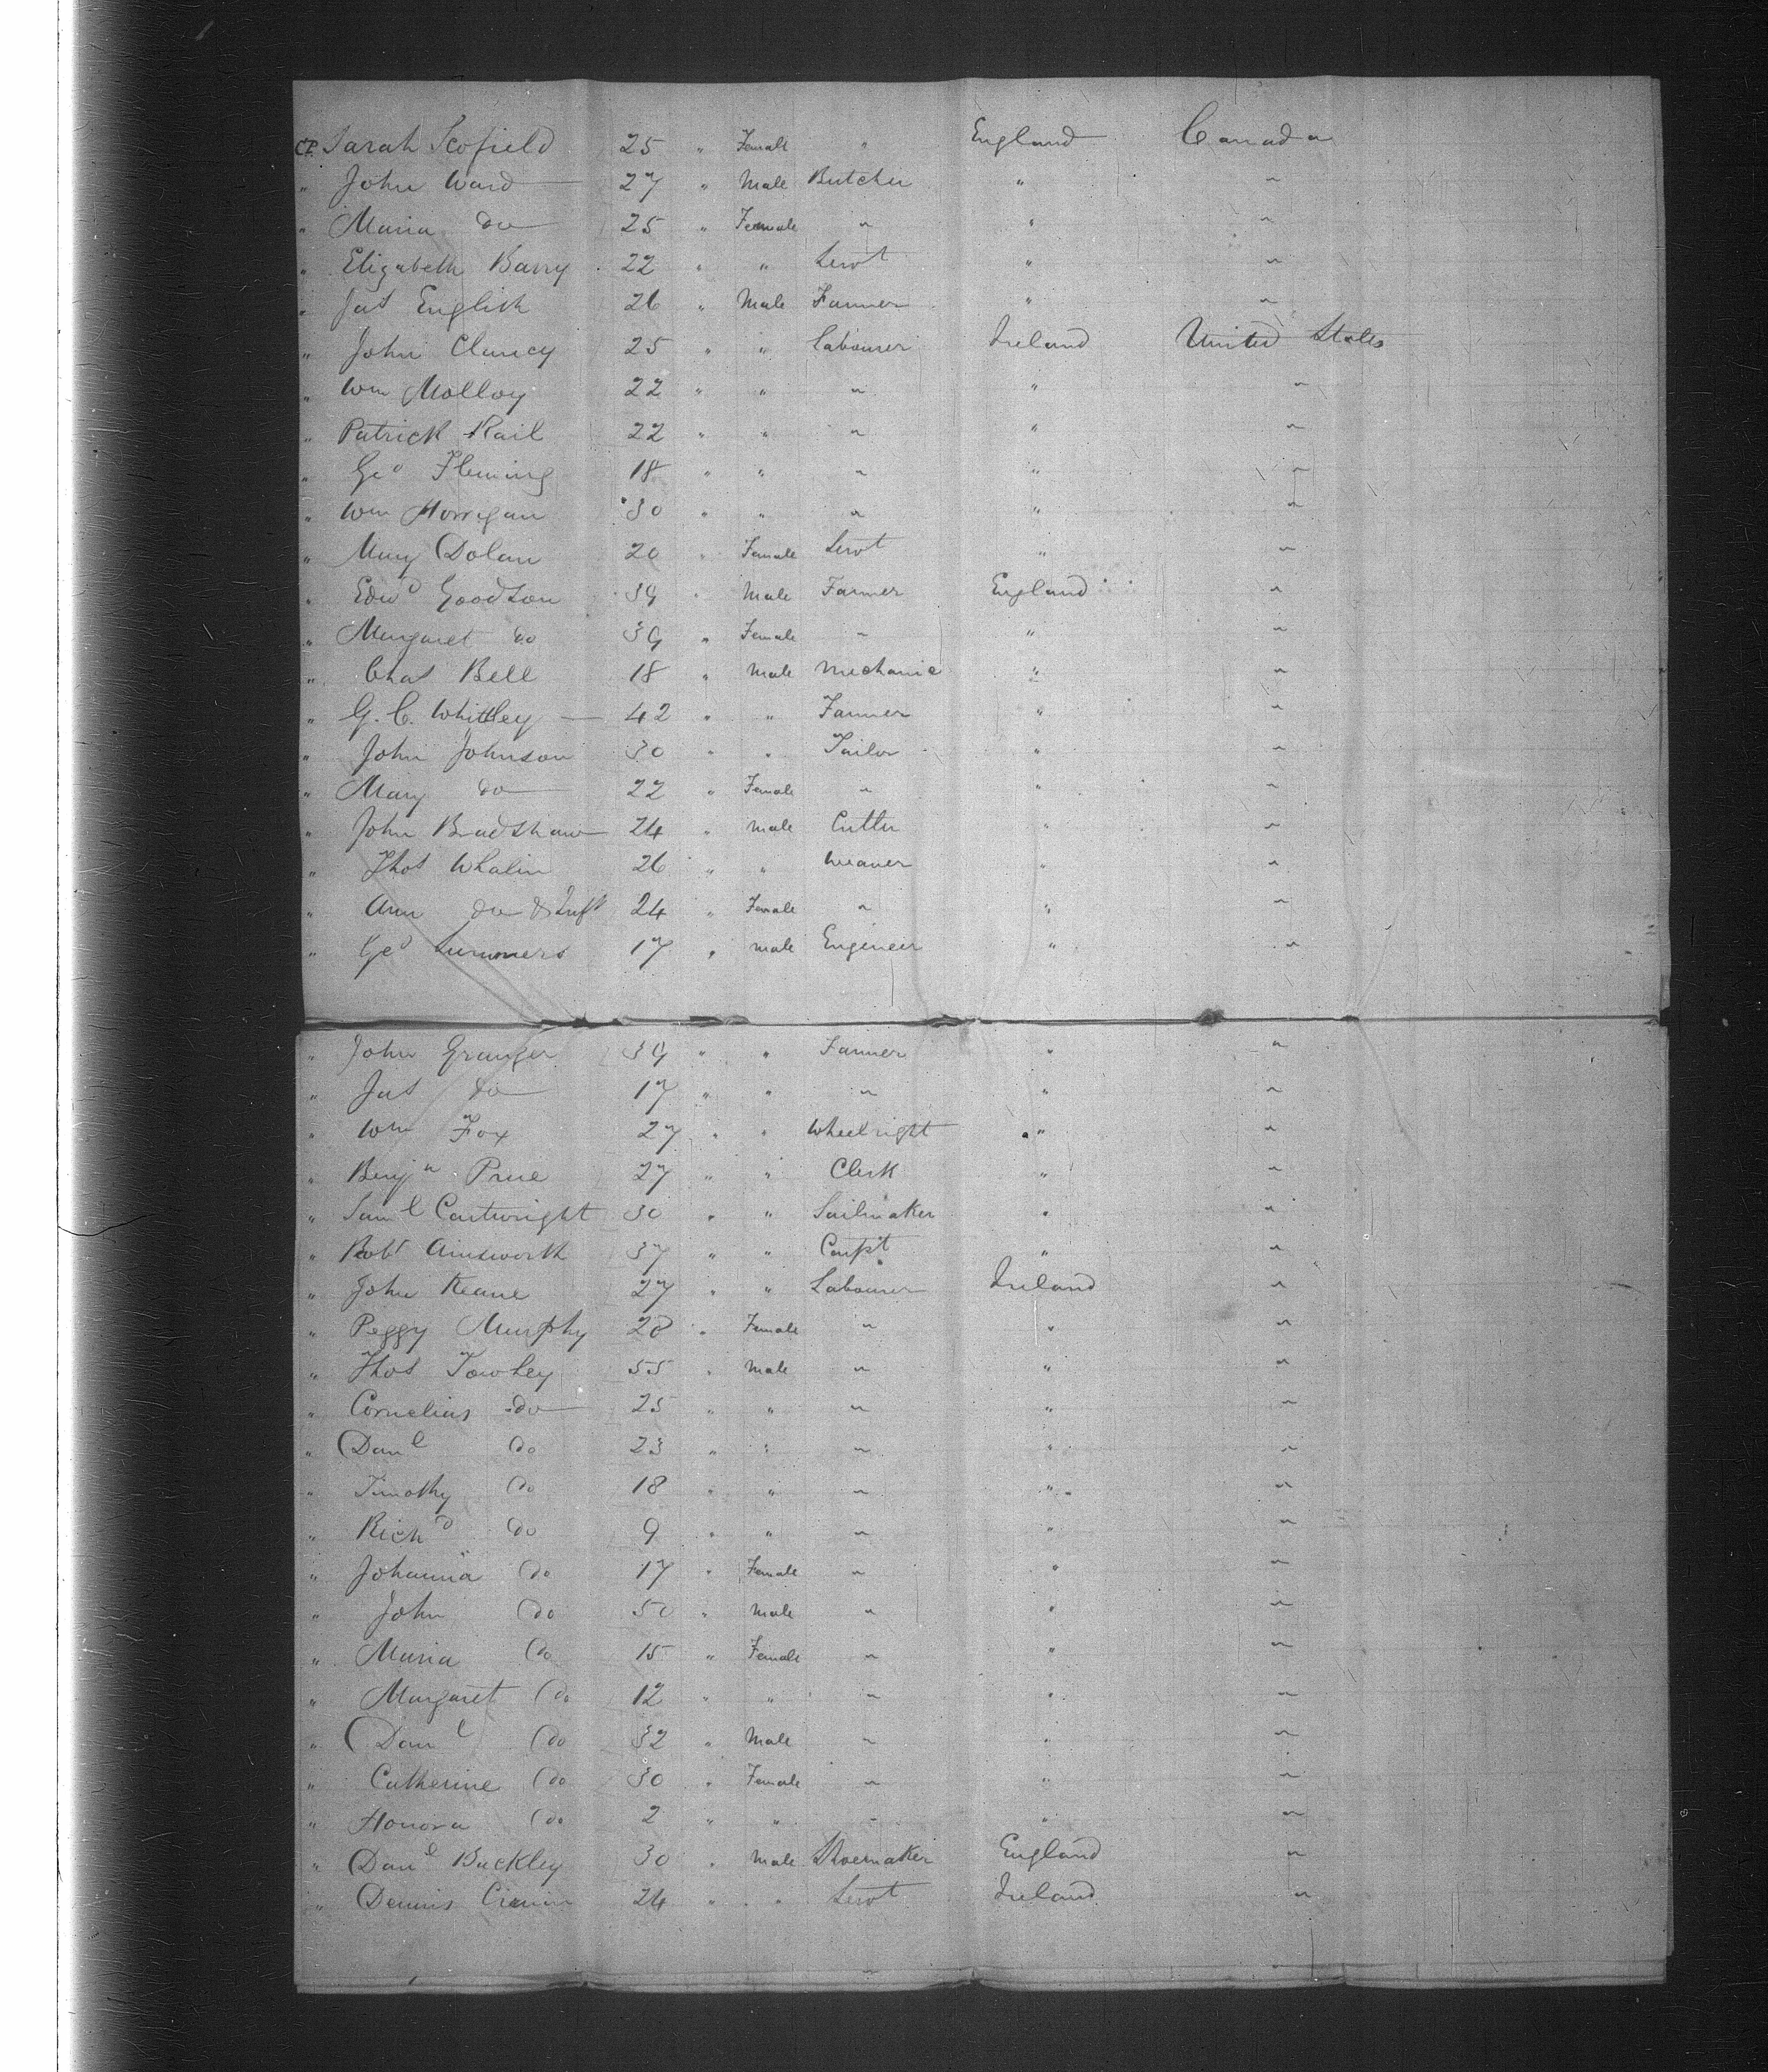 CP. Sarah Scofield 25 " Female " England Canada
" John Ward 27 " Male Butcher " "
" Maria do 25 " Female " " "
" Elizabeth Barry 22 " " Servt " "
" Jas English 26 " Male Farmer " "
" John Clancy 25 " " Labourer Ireland United States
" Wm Molloy 22 " " " " "
" Patrick Kail 22 " " " " "
" Geo Fleming 18 " " " " "
" Wm Horrigan 30 " " " " "
" Mary Dolan 20 " Female Servt " "
" Edwd Goodson 39 " Male Farmer England "
" Margaret do 39 " Female " " "
" Chas Bell 18 " Male Mechanic " "
" G. C. Whittley 42 " " Farmer " "
" John Johnson 30 " " Tailor " "
" Mary do 22 " Female " " "
" John Bradshaw 24 " Male Cutler " "
" Thos Whalin 26 " " Weaver " "
" Ann do & Inft 24 " Female " " "
" Geo Summers 17 " Male Engineer " "
" John Granger 39 " " Farmer " "
" Jas do 17 " " " " "
" Wm Fox 27 " " Wheelright " "
" Benjn Prue 27 " " Clerk " "
" Saml Cartwright 30 " " Sailmaker " "
" Robt Ainsworth 37 " " Carpt " "
" John Keane 27 " " Labourer Ireland "
" Peggy Murphy 28 " Female " " "
" Thos Towhey 55 " Male " " "
" Cornelias do 25 " " " " "
" Danl do 23 " " " " "
" Timothy do 18 " " " " "
" Richd do 9 " " " " "
" Johanna do 17 " Female " " "
" John do 50 " Male " " "
" Maria do 15 " Female " " "
" Margaret do 12 " " " " "
" Danl do 32 " Male " " "
" Catherine do 30 " Female " " "
" Honora do 2 " " " " "
" Danl Buckley 30 " Male Shoemaker England "
" Dennis Cronin 24 " " Servt Ireland "